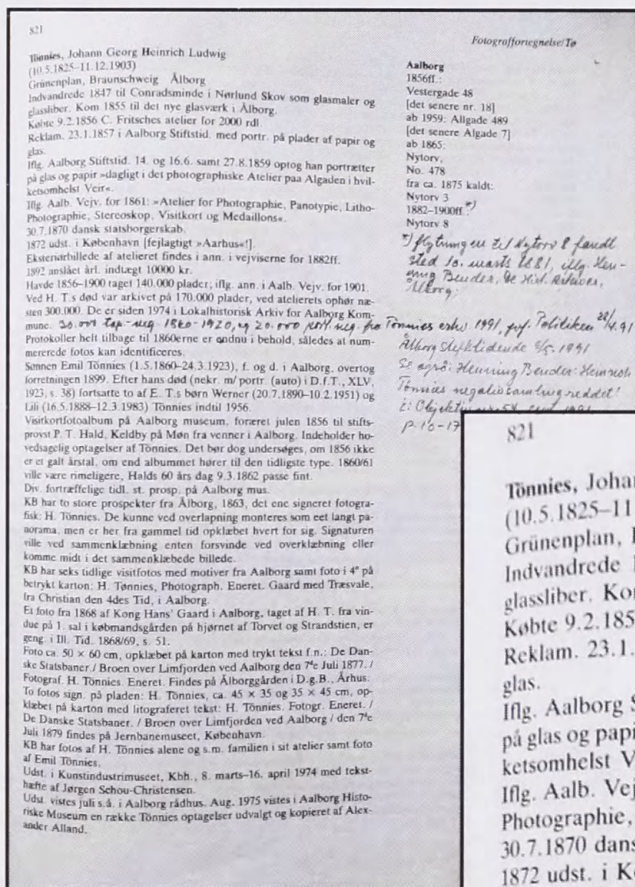 821
Fotograffortegnelse/Tø
Tönnies, Johann Georg Heinrich Ludwig
(10.5.1825–11.12.1903)
Grünenplan, Braunschweig Ålborg
Indvandrede 1847 til Conradsminde i Nørlund Skov som glasmaler og
glassliber. Kom 1855 til det nye glasværk i Ålborg.
Købte 9.2.1856 C. Fritsches atelier for 2000 rdl.
Reklam. 23.1.1857 i Aalborg Stiftstid. med portr. på plader af papir og
glas.
Iflg. Aalborg Stiftstid. 14. og 16.6. samt 27.8.1859 optog han portrætter
på glas og papir »dagligt i det photographiske Atelier paa Algaden i hvil-
ketsomhelst Veir«.
Iflg. Aalb. Vejv. for 1861: »Atelier for Photographie, Panotypie, Litho-
Photographie, Stereoskop, Visitkort og Medaillons«.
30.7.1870 dansk statsborgerskab.
1872 udst. i København [fejlagtigt »Aarhus«!].
Eksteriørbillede af atelieret findes i ann. i vejviserne for 1882ff.
1892 anslået årl. indtægt 10000 kr.
Havde 1856–1900 taget 140.000 plader; iflg. ann. i Aalb. Vejv. for 1901.
Ved H. T.s død var arkivet på 170.000 plader, ved atelierets ophør næ-
sten 300.000. De er siden 1974 i Lokalhistorisk Arkiv for Aalborg Kom-
mune. 30.000 top.-neg. 1860-1920, og 20.000 port. neg. fra Tönnies erhv 1991, jvf. Politiken 28/4.91
Protokoller helt tilbage til 1860erne er endnu i behold, således at num-
mererede fotos kan identificeres.
Sønnen Emil Tönnies (1.5.1860–24.3.1923), f. og d. i Aalborg, overtog
forretningen 1899. Efter hans død (nekr. m/ portr. (auto) i D.f.T., XLV,
1923, s. 38) fortsatte to af E. T.s børn Werner (20.7.1890–10.2.1951) og
Lili (16.5.1888–12.3.1983) Tönnies indtil 1956.
Visitkortfotoalbum på Aalborg museum, foræret julen 1856 til stifts-
provst P. T. Hald, Keldby på Møn fra venner i Aalborg. Indeholder ho-
vedsagelig optagelser af Tönnies. Det bør dog undersøges, om 1856 ikke
er et galt årstal, om end albummet hører til den tidligste type. 1860/61
ville være rimeligere, Halds 60 års dag 9.3.1862 passe fint.
Div. fortræffelige tidl. st. prosp. på Aalborg mus.
KB har to store prospekter fra Ålborg, 1863, det ene signeret fotogra-
fisk: H. Tönnies. De kunne ved overlapning monteres som eet langt pa-
norama, men er her fra gammel tid opklæbet hvert for sig. Signaturen
ville ved sammenklæbning enten forsvinde ved overklæbning eller
komme midt i det sammenklæbede billede.
KB har seks tidlige visitfotos med motiver fra Aalborg samt foto i 4° på
betrykt karton: H. Tønnies, Photograph. Eneret. Gaard med Træsvale,
fra Christian den 4des Tid, i Aalborg.
Et foto fra 1868 af Kong Hans' Gaard i Aalborg, taget af H. T. fra vin-
due på 1. sal i købmandsgården på hjørnet af Torvet og Strandstien, er
geng. i Ill. Tid. 1868/69, s. 51.
Foto ca. 50 × 60 cm, opklæbet på karton med trykt tekst f.n.: De Dan-
ske Statsbaner./ Broen over Limfjorden ved Aalborg den 7de Juli 1877. /
Fotograf. H. Tönnies. Eneret. Findes på Ålborggården i D.g.B., Århus.
To fotos sign. på pladen: H. Tönnies, ca. 45 × 35 og 35 × 45 cm, op-
klæbet på karton med litograferet tekst: H. Tönnies. Fotogr. Eneret. /
De Danske Statsbaner. / Broen over Limfjorden ved Aalborg / den 7de
Juli 1879 findes på Jernbanemuseet, København.
KB har fotos af H. Tönnies alene og s.m. familien i sit atelier samt foto
af Emil Tönnies.
Udst. i Kunstindustrimuseet, Kbh., 8. marts–16. april 1974 med tekst-
hæfte af Jørgen Schou-Christensen.
Udst. vistes juli s.å. i Aalborg rådhus. Aug. 1975 vistes i Aalborg Histo-
riske Museum en række Tönnies optagelser udvalgt og kopieret af Alex-
ander Alland.
Aalborg
1856ff.:
Vestergade 48
[det senere nr. 18]
ab 1959: Allgade 489
[det senere Algade 7]
ab 1865:
Nytorv,
No. 478
fra ca. 1875 kaldt:
Nytorv 3
1882–1900ff. *)
Nytorv 8
*) flytningen til Nytorv 8 fandt
sted 10. marts 1881, iflg. Hen-
ning Bender, De Hist. Arkiver,
Ålborg.
Ålborg Stiftstidende 4/5. 1991
Se også: Henning Bender: Heinrich
Tönnies negativsamling reddet!
i: Objektiv
p. 10-17
821
Tönnies, Joha
(10.5.1825–11
Grünenplan, 
Indvandrede
glassliber. Kom
Købte 9.2.185
Reklam. 23.1.
glas.
Iflg. Aalborg S
på glas og papi
ketsomhelst V
Iflg. Aalb. Vej
Photographie,
30.7.1870 dans
1872 udst. i K